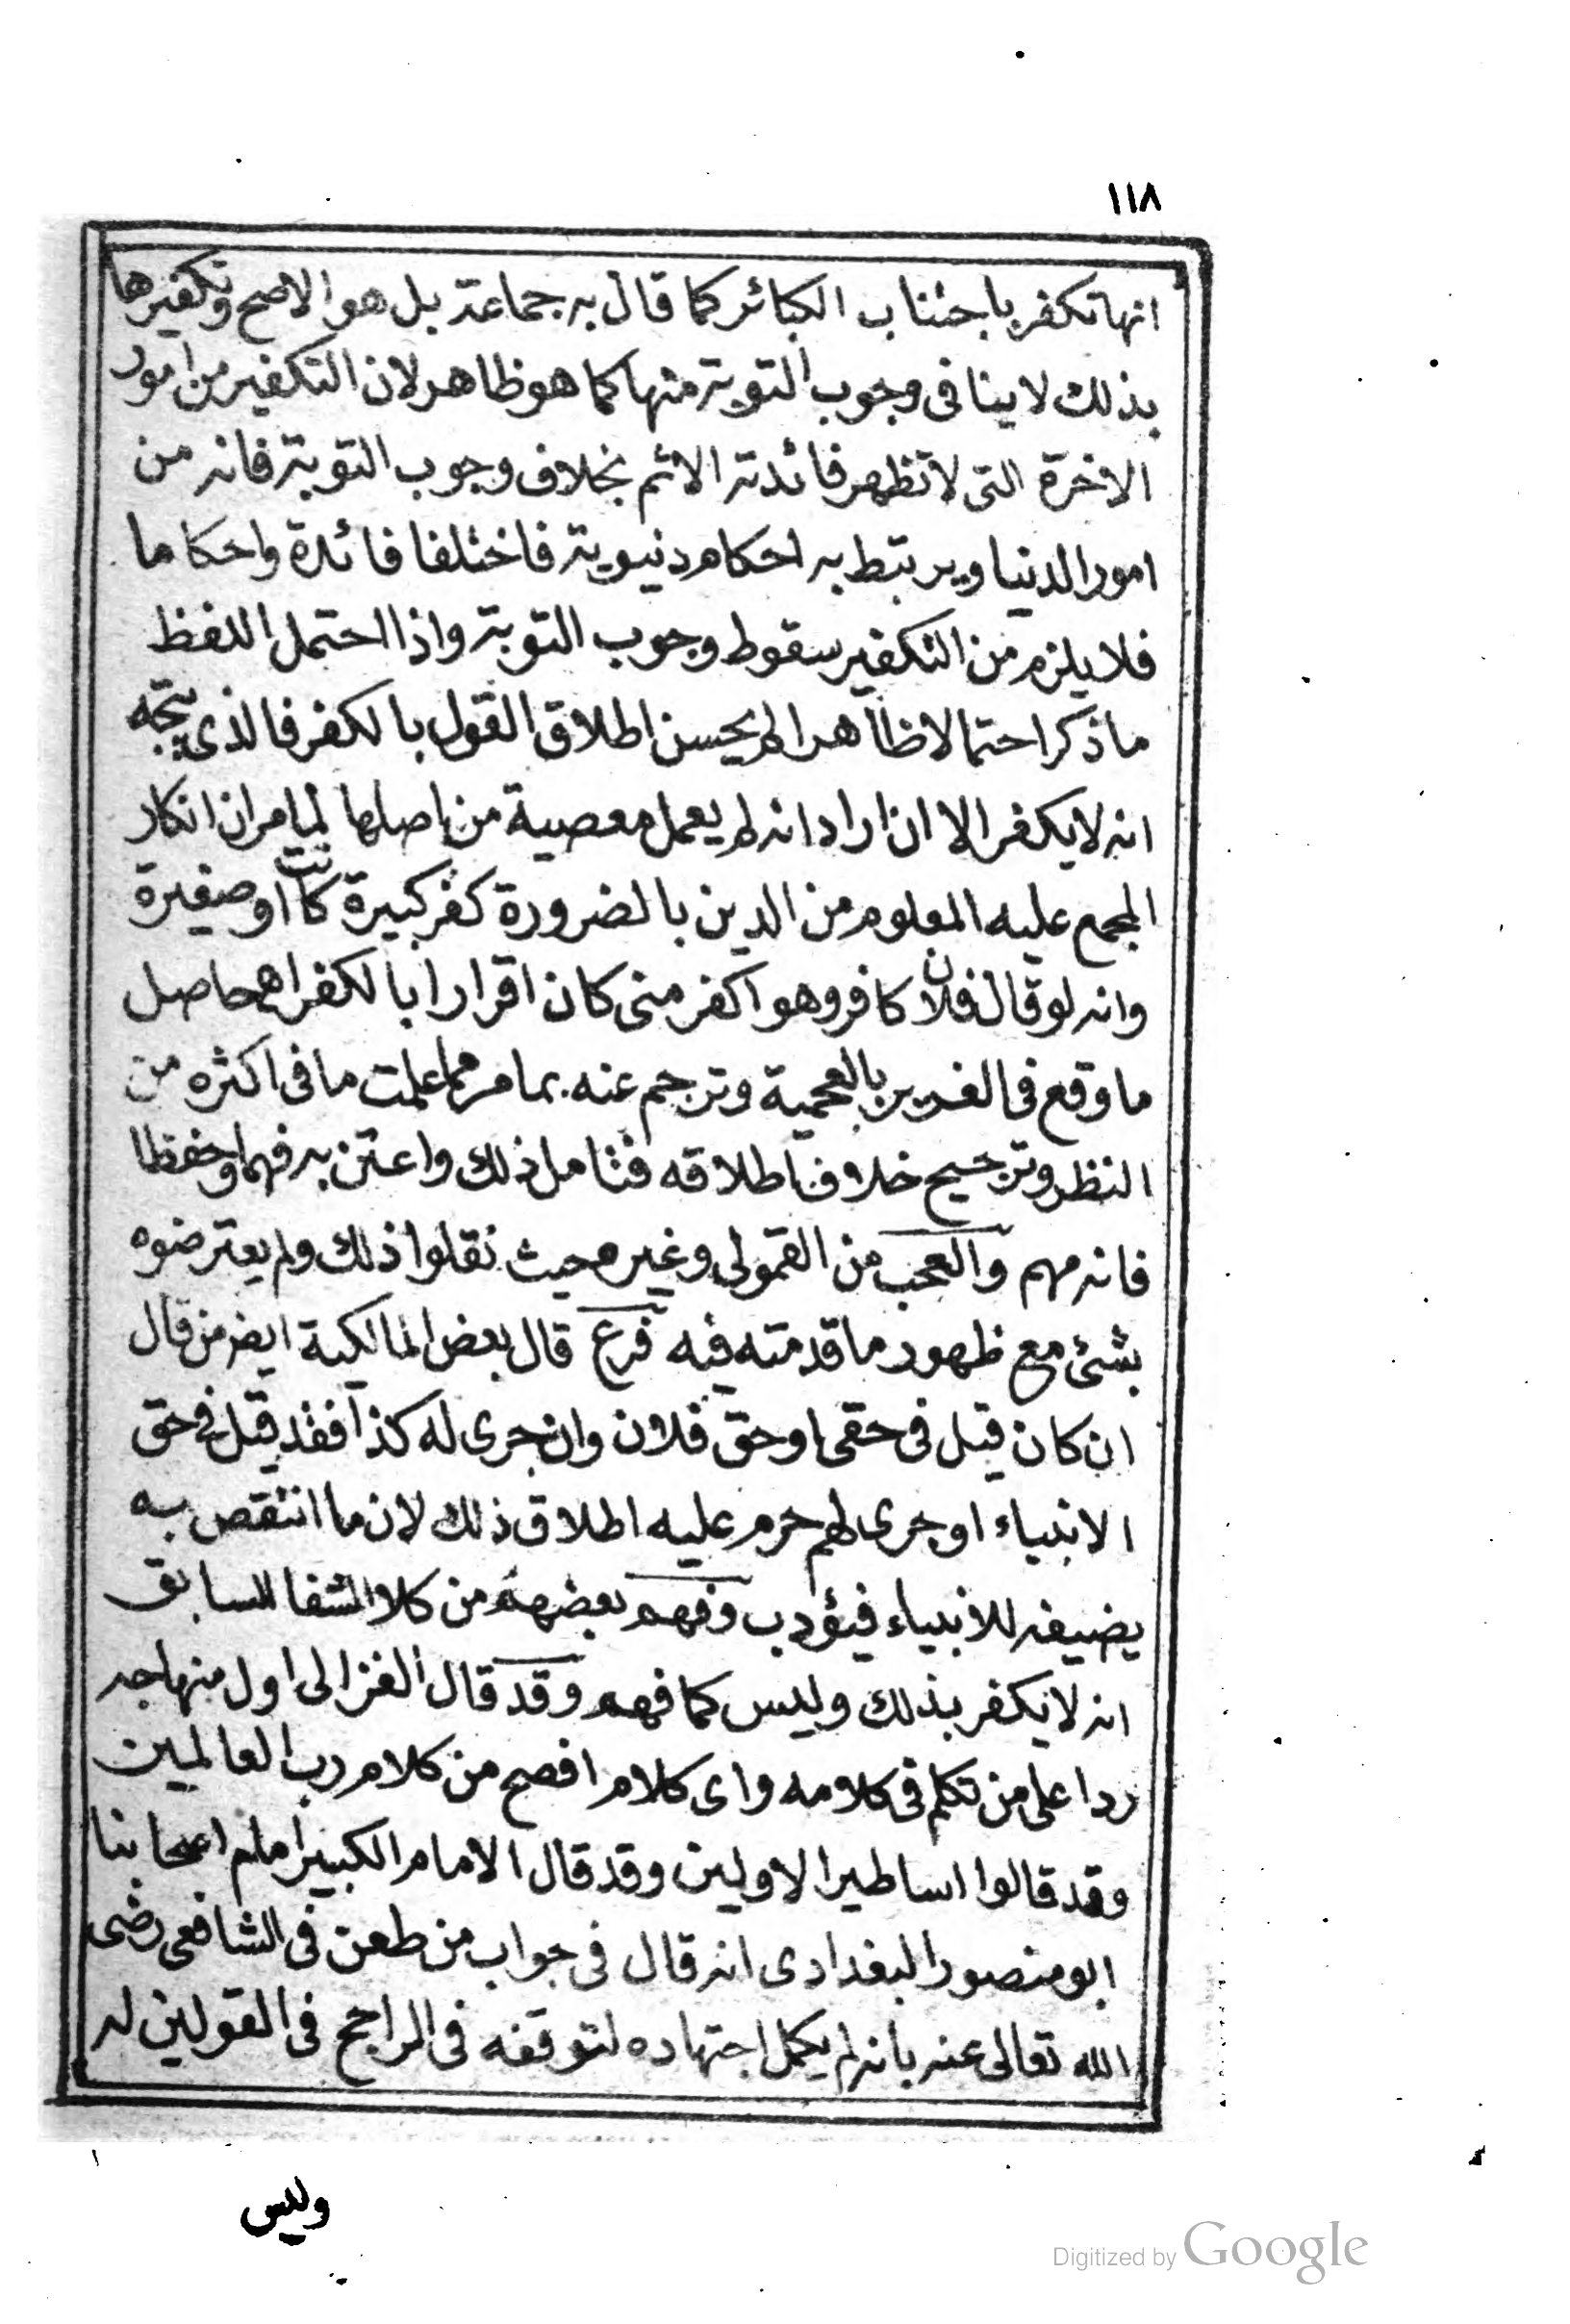 ١١٨
انها تكفر باجتناب الكبائر كما قال به جماعة بل هو الاصح وتكفيرها
بذلك لا ينافى وجوب التوبة منها كما هو ظاهر لان التكفير من امور
الاخرة التى لا تظهر فائدته الا ثم بخلاف وجوب التوبة فانه من
امور الدنيا ويرتبط به احكام دنيوية فاختلفا فائدة واحكاما
فلا يلزم من التكفير سقوط وجوب التوبة واذا احتمل اللفظ
ما ذكر احتمالا ظاهرا لم يحسن اطلاق القول بالكفر فالذى يتجه
انه لا يكفر الا ان اراد انه لم يعمل معصية من اصلها لما مر ان انكار
المجمع عليه المعلوم من الدين بالضرورة كفر كبيرة كانت او صغيرة
وانه لو قال فلان كافر وهو اكفر منى كان اقرارا بالكفر اهـ حاصل
ما وقع فى الغرير بالعجمية وترجم عنه بما مر مما علمت ما فى اكثره من
النظر وترجيح خلاف اطلاقه فتامل ذلك واعتن به فهما وحفظا
فانه مهم والعجب من القمولى وغيره حيث نقلوا ذلك ولم يعترضوه
بشئ مع ظهور ما قدمته فيه فرع قال بعض المالكية ايضر من قال
ان كان قيل فى حقى او حق فلان وان جرى له كذا فقد قيل فى حق
الانبياء او جرى لهم حرم عليه اطلاق ذلك لان ما انتقص به
يضيفه للانبياء فيؤدب وفهم بعضهم من كلام الشفا السابق
انه لا يكفر بذلك وليس كما فهم وقد قال الغزالى اول منهاجه
ردا على من تكلم فى كلامه واى كلام افصح من كلام رب العالمين
وقد قالوا اساطير الاولين وقد قال الامام الكبير امام اصحابنا
ابو منصور البغدادى انه قال فى جواب من طعن فى الشافعى رضى
الله تعالى عنه بانه لم يكمل اجتهاده لتوقفه فى الراجح فى القولين له
وليس
Digitized by Google